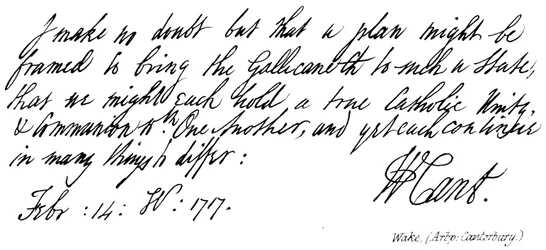 I make no doubt but that a plan might be
framed to bring the Gallicane Ch to such a State,
that we might each hold a true Catholic Unity,
& Communion wth. One Another, and yet each continue
in many things to differ:
Febr :14: W: 1717.
W Cant.
Wake, (Arbp: Canterbury.)